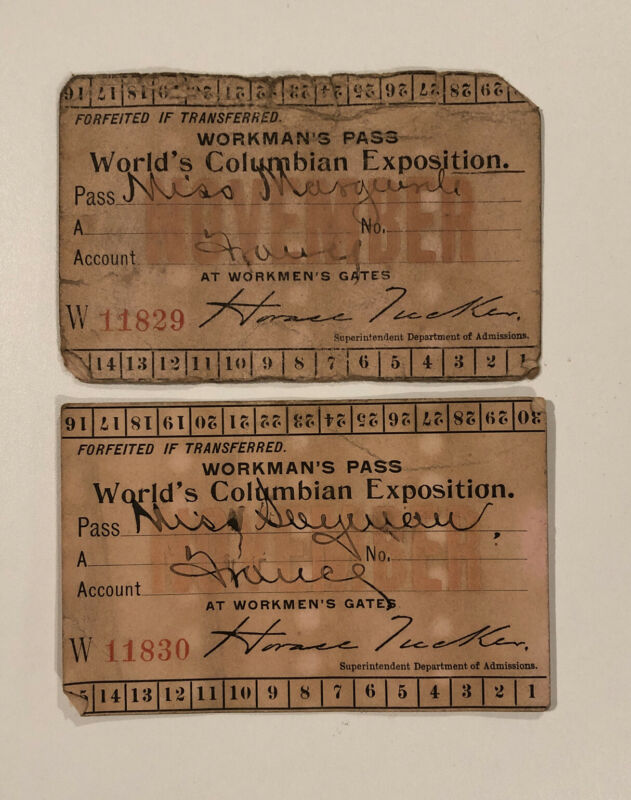 16 17 18 19 20 21 22 23 24 25 26 27 28 29
FORFEITED IF TRANSFERRED.
WORKMAN'S PASS
World's Columbian Exposition.
Pass Miss Marguerite
NOVEMBER
A No.
Account France
AT WORKMEN'S GATES
W 11829 Horace Tucker.
Superintendent Department of Admissions.
14 13 12 11 10 9 8 7 6 5 4 3 2 1
16 17 18 19 20 21 22 23 24 25 26 27 28 29 30
FORFEITED IF TRANSFERRED.
WORKMAN'S PASS
World's Columbian Exposition.
Pass Miss
NOVEMBER
A No.
Account France
AT WORKMEN'S GATES
W 11830 Horace Tucker.
Superintendent Department of Admissions.
15 14 13 12 11 10 9 8 7 6 5 4 3 2 1